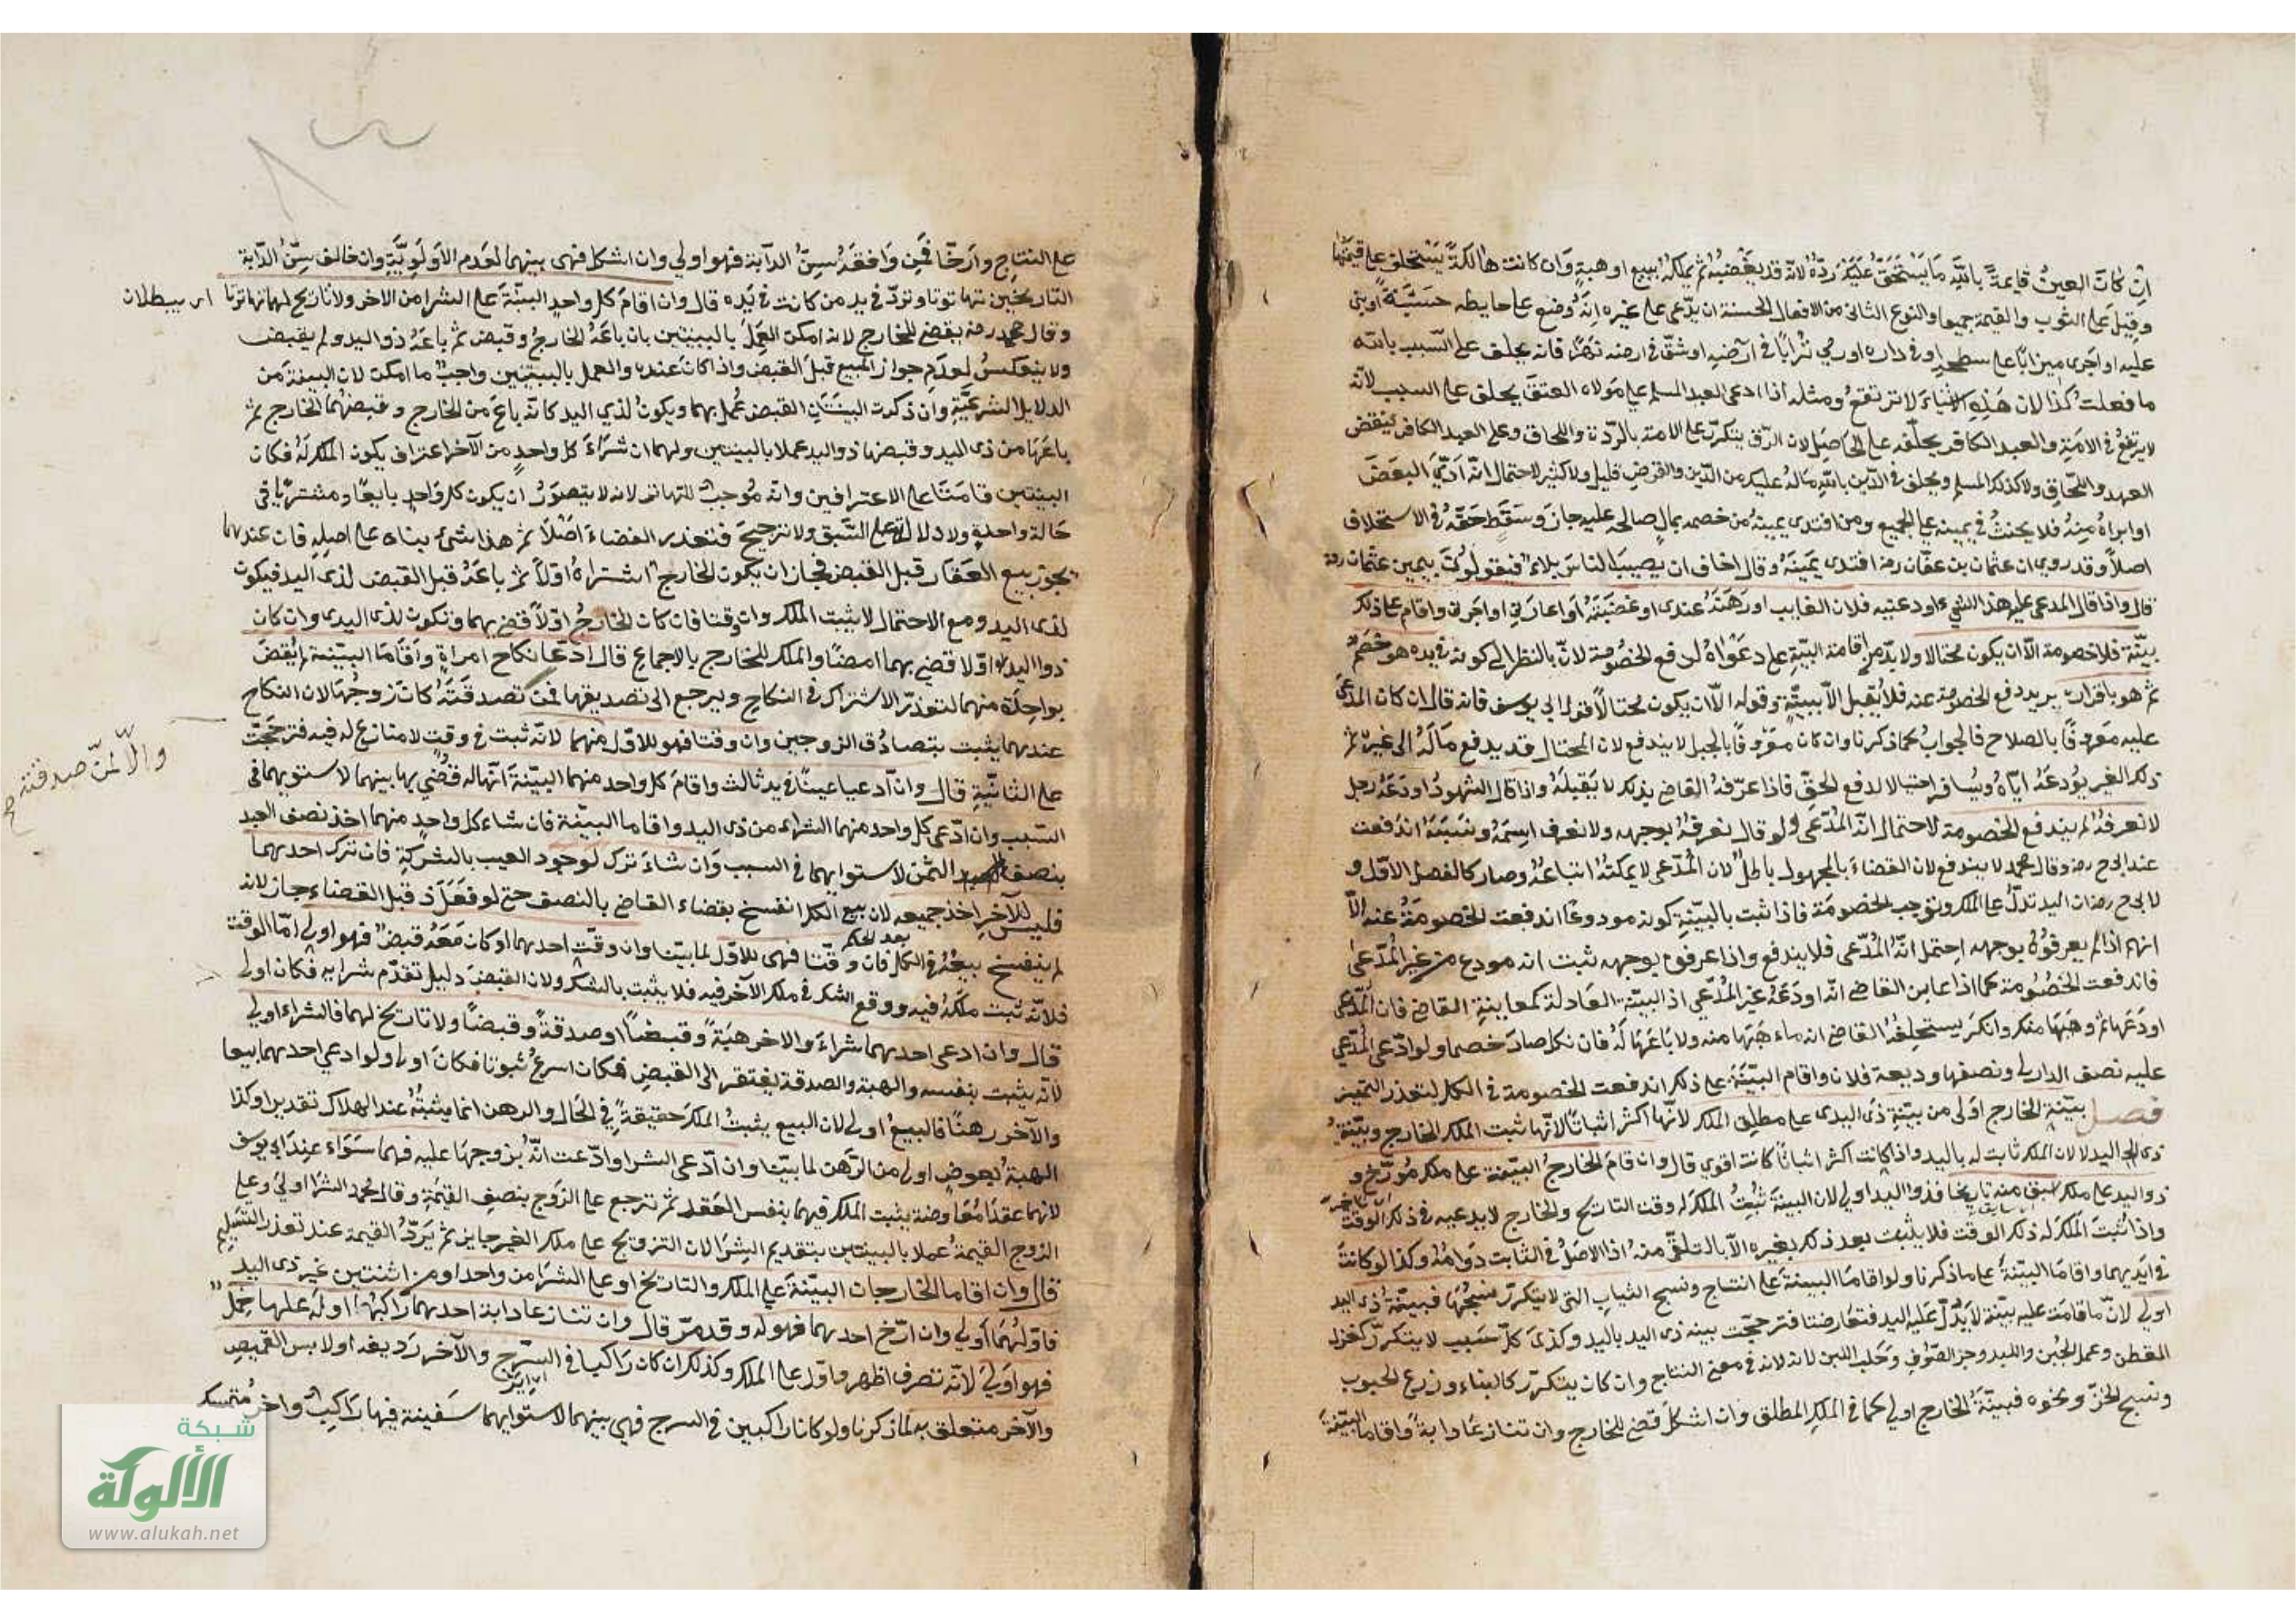 ان كانَ العينُ قايمةً باللّه مَا يَسْتَحَقّ عَلَيْكَ رَدّهُ لانّه قد يغْصبُهُ ثم يملكهُ ببيع او هبةٍ وَان كانت هالكةً يَسْتحلف على قيمتها
وقيلَ على الثوب والقيمة جميعا والنوع الثانى من الافعال الحسنة ان يدّعى على غيره انّهُ وضع على حايطه خشبَةً او بنى
عليه او اجرى ميزابًا على سطحهِ او فى داره او رمى تُرابًا فى ارضهِ او شقّ فى ارضه نهرًا فانه يحلف على السّبب باللّه
ما فعلتُ كذا لان هَذِهِ الاشْياءَ لا ترتفعُ ومثله اذا ادعى العبد المسلم على مَولاه العتقَ يحلف على السبب لانّه
لا يرتفعُ وفى الامَةِ والعبد الكافر يحلّفه على الحَاصِل لان الرّق يتكرّر على الامة بالردّة واللحاق وعلى العبد الكافر بنقض
العهد واللّحاقِ ولا كذلك المسلم ويحلف فى الدّين باللّهِ مَا لهُ عليك من الدّين والقرض قليل ولا كثير لاحتمال انّه ادّى البعضَ
او ابراهُ منه فلا يحنثُ فى يمينهِ على الجميع ومن افتدى يمينهُ من خصمه بمالٍ صالحه عليه جازَ وسَقَط حَقّهُ فى الاستحلاف
اصلًا وقد روى ان عثمان بن عفّان رضه افتدى يَمينَهُ وقال اخاف ان يصيبَ الناسَ بلاءٌ فيقولونَ بيمين عثمان رضه
قال واذا قال المدعى عليه هذا الشىء اودعنيه فلان الغايب او رَهنَهُ عندى او غصَبْتُهُ او اعارَنى او اجرنى واقام على ذلك
بيّنة فلا خصومة الّا ان يكون محتالا ولا بدّ من اقامة البيّنةِ على دعَوَاهُ لدفع الخصُومة لانّ بالنظر الى كونه فى يده هو خصمٌ
ثم هو باقراره يريد دفع الخصومة عنه فلا يُقبل الّا ببيّنة وقوله الّا ان يكون محتالًا قول ابى يوسف فانه قال ان كان المدّعَى
عليه مَعرُوفًا بالصلاح فالجوابُ كما ذكرنا وان كان معرُوفًا بالحيل لا يندفع لان المحتال قد يدفع مَالَهُ الى غيره ثم
ذلك الغير يُودعَهُ ايّاهُ ويُسَافِر احتيالا لدفع الحقّ فاذا عرّفهُ القاضى بذلك لا يَقبَلهُ واذا قال الشهودُ اودَعَهُ رجل
لا نعرفهُ لم يندفع الخصومة لاحتمال انّهُ المُدّعى ولو قال نعرفهُ بوجهه ولا نعرف اسِمَهُ ونَسَبَهُ اندَفعت
عند ابى ح رضه وقال محمد لا يندفع لان القضاءَ بالمجهول باطلٌ لان المُدّعى لا يمكنهُ اتباعهُ وصار كالفصل الاوّل و
لابى ح رضه ان اليد تدلّ على الملك وتوجب الخصُومَة فاذا ثبت بالبيّنةِ كونه مودوعًا اندفعت الخصومةُ عنه الّا
انهم اذا لم يعرفوُهُ بوجهه احتمل انّهُ المُدّعى فلا يندفع واذا عرفوه بوجهه ثبت انه مودع من غير المُدّعى
فاندفعت الخصُومة كما اذا عاين القاضى انّه اودَعَهُ غيرُ المُدّعى اذ البيّنة العَادلة كمعاينةِ القاضى فان المُدّعى
اودَعَها ثم وهَبَها منك وانكرَ يستحلِفهُ القاضى انه ما وهَبَها منه ولا باعَها لهُ فان نكل صارَ خصما ولو ادّعى المُدّعى
عليه نصف الدار لى ونصفها وديعة فلان واقام البيّنةَ على ذلك اندفعت الخصومة فى الكل لتعذر التميز
فصل بيّنةِ الخارج اوَلى من بيّنةِ ذى اليدى على مطلِق الملك لانّها اكثر اثباتًا لانّها تثبت الملك للخارج وبيّنةُ
ذى اليد لا لان الملك ثابت له باليد واذا كانت اكثر اثباتًا كانت اقوى قال وان قام الخارج البيّنة على ملك مُورّخ و
ذو اليد على ملك اسبق منه تاريخا فذو اليد اولى لان البينة تثبتُ الملك له وقت التاريخ والخارج لا يدعيه فى ذلك الوقت
واذا ثبتَ الملك له ذلك الوقت فلا يثبت بعد ذلك بغيره الّا بالتلقّى منهُ اذ الاصل فى الثابت دَوامهُ وكذا لو كانت
فى ايَديهما واقامَا البيّنَةَ على ما ذكرنا ولو اقامَا البينةَ على النتاج ونسج الثياب التى لا يتكرّر نسجُهَا فبيّنةُ ذى اليد
اولى لانّ ما قامَت عليه بيّنة لا يَدُلّ عَليه اليد فتعارضتا فترجّحت بينة ذى اليد باليد وكذلك كلّ سَبب لا يتكرّر كغزل
القطن وعمل الجُبن واللبد وجز الصّوفِ وحَلب اللبن لانه فى معنى النتاج وان كان يتكرّر كالبناء وزرع الحبوب
ونسج الخزّ ونحوه فبيّنةُ الخارج اولى كما فى الملك المطلق وان اشكل قضى للخارج وان تنازعَا دابة واقاما البيّنةَ
على النتاج وارّخا فَمن وَافقهُ سِنُّ الدآبة فهو اولى وان اشكل فهى بينهما لعَدم الاَولَويّةِ وان خالف سِنّ الدّابة
التاريخين تهاتَرتا وتردّ فى يد من كانت فى يَده قال وان اقامَ كل واحدٍ البيّنةَ على الشرا من الاخر ولا تاريخ لهما تهاترتا
وقال محمد رضه يقضى للخارج لانه امكن العمَل بالبينتين بان باعَهُ الخارجُ وقبضَ ثم باعَهُ ذو اليد ولم يقبض
ولا ينعكسُ لعدَمِ جواز المبيع قبلَ القبض واذا كانَ عنده والعمل بالبينتين واجبٌ ما امكن لان البينةَ من
الدلايل الشرعيّةِ وان ذكرت البينَتانِ القبض عُمل بهما ويكونُ لذى اليد كانّه باعَ من الخارج وقبضهُما الخارج ثم
باعَها من ذى اليد وقبضها ذو اليد عملا بالبينتين ولهما ان شرَاءَ كل واحدٍ من الآخر اعترافٌ بكون الملك لهُ فكان
البينتين قامَتَا على الاعترافين وانه مُوجبٌ للتهاتر لانه لا يتصوّرُ ان يكون كل وَاحدٍ بايعًا ومشتريًا فى
حَالة واحدةٍ ولا دلالة على السَّبق ولا ترجيحَ فتعذر القضاءَ اصْلًا ثم هذا شىء بناه على اصلهِ فان عندهما
يجوز بيع العقار قبل القبض فجاز ان يكون الخارج اشتراهُ اوّلا ثم باعَهُ قبل القبض لذى اليد فيكون
لذى اليد ومع الاحتمال لا يثبت الملك وان وقتا فان كان الخارجُ اوّلًا قضى بهما وتكون لذى اليدى وان كان
ذو اليد اوّلا قضى بهما ايضًا والملك للخارج بالاجماع قال ادّعَا نكاح امراةٍ وَاَقَامَا البيّنة لم يُقضَ
بواحِدَةٍ منهما لتعذرّ الاشتراك فى النكاح ويرجع الى تصديقها فَمن تصدقَتهُ كانَ زوجُهَا لان النكاح
عندهما يثبت بتصادُق الزوجين وان وقتا فهو للاوّل منهما لانّه ثبت فى وقت لا منازع له فيه فترجّحت
على الثانيةِ قال وان ادعيا عينًا فى يد ثالث واقامَ كل واحد منهما البيّنةَ انّها له قُضى بها بينهما لاستوايهما فى
السّبب وان ادّعى كل واحد منهما الشراء من ذى اليد واقاما البيّنة فان شاء كل واحدٍ منهما اخذ نصف العبد
بنصف الثمن لاستوايهما فى السبب وَان شاءَ ترك لوجود العيب بالشركةِ فان ترك احدهما
فليس للآخرِ اخذ جميعه لان بيع الكل انفسخ بقضاء القاضى بالنصف حتى لو فعَلَ ذ قبل القضاء جاز لانه
بعد الحكم
لم ينفسخ بيعُهُ فى الكل فان وقّتا فهى للاوّل لما بيّنا وان وقّت احدهما او كان مَعَهُ قبض فهو اولى امّا الوقت
فلانّه ثبت ملكهُ فيه ووقع الشك فى ملك الآخر فيه فلا يثبت بالشك ولان القبضَ دليل تقدّم شرايه فكان اولى
قال وان ادعى احدهما شراءَ والاخر هبَةً وقبضاً او صدقةً وقبضًا ولا تاريخ لهما فالشراء اولى
لانّه يثبت بنفسه والهبة والصدقة يفتقر الى القبضِ فكان اسرعُ ثبوتا فكانَ اولى ولو ادعى احدهما بيعا
والآخر رهنًا فالبيعُ اولى لان البيع يثبتُ الملكَ حَقيقةً فى الحال والرهن انما يثبتُهُ عند الهلاك تقديرا وكذا
الهبةُ بعوض اولى من الرّهن لما بيّنا وان ادّعى الشرا وادّعت انّهُ تزوجهَا عليه فهما سَوَاء عندَ ابى يوسف
لانهما عقدَا مُعَاوضة يثبت الملك فيهما بنفس العَقد ثم ترجع على الزوج بنصفِ القيمَةِ وقال محمد الشرا اولى وعلى
الزوج القيمةُ عملا بالبينتين بتقديم الشرَا لان التزويج على ملك الغير جايز ثم يَردّ القيمة عند تعذر التسليم
قال وان اقاما الخارجان البيّنةَ على الملك والتاريخ او على الشرَا من واحد او من اثنين غير ذى اليد
فاوّلهُمَا اولى وان ارّخ احدهما فهو له وقد مرّ قال وان تنازعا دابة احدهما راكبهَا او لهُ عليها حِملٌ
فهو اوَلى لانّه تصرف اظهر وادلّ على الملك وكذلك ان كان رَاكبا فى السَّرجِ والآخر رَديفه او لابس القَميص
والآخر متعلق به لما ذكرنا ولو كانا راكبين فى السرج فهى بينهما لاستوايهما سَفينة فيها رَاكبٌ واخرُ مُتمسك
والّا لمنّ صدقته صح
شبكة
الألوكة
www.alukah.net